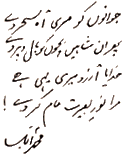 جوانوں کو مری آہِ سحر دے
پھر ان شاہیں بچوں کو بال و پر دے
خدایا آرزو میری یہی ہے
مرا نورِ بصیرت عام کر دے!
محمد اقبال